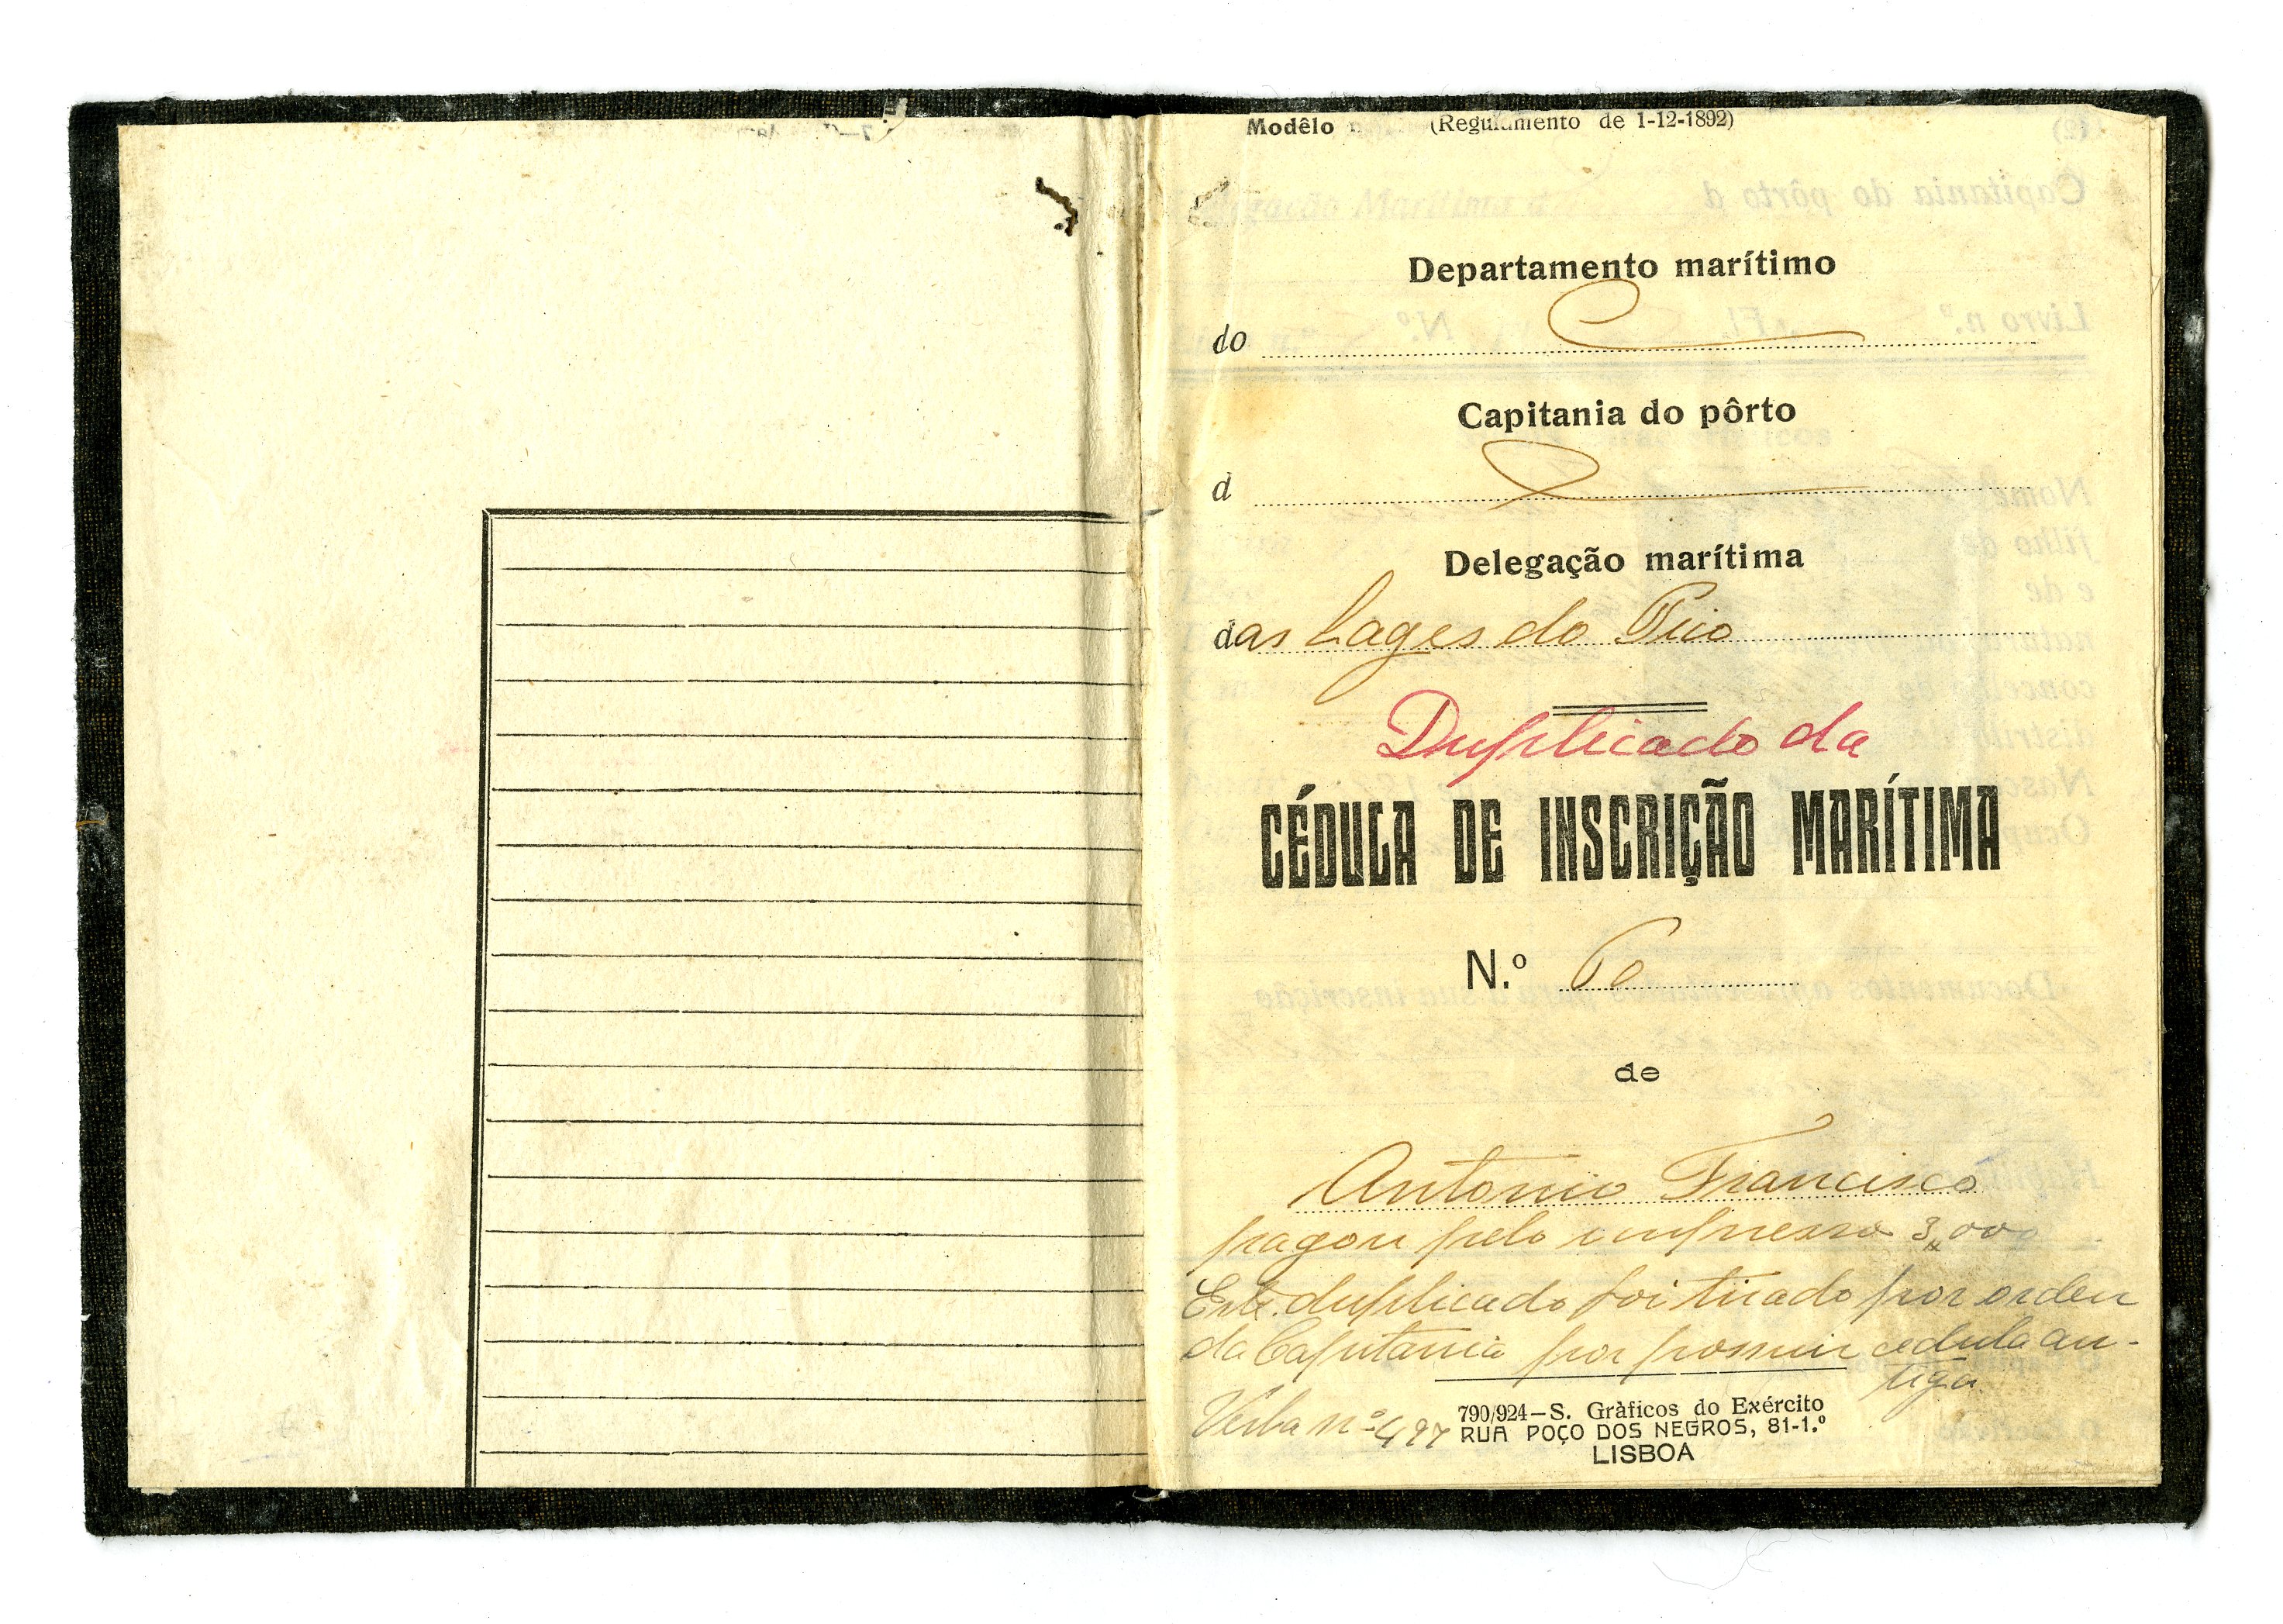 Modêlo (Regulamento de 1-12-1892)
Departamento marítimo
do
Capitania do pôrto
d
Delegação marítima
das Lages do Pico
Duplicado da
CÉDULA DE INSCRIÇÃO MARÍTIMA
N.º 60
de
Antonio Francisco
pagou pelo impresso 3$00
Este duplicado foi tirado por ordem
da Capitania por possuir cedula an-
tiga
Verba nº 497
790/924—S. Gràficos do Exército
RUA POÇO DOS NEGROS, 81-1.º
LISBOA